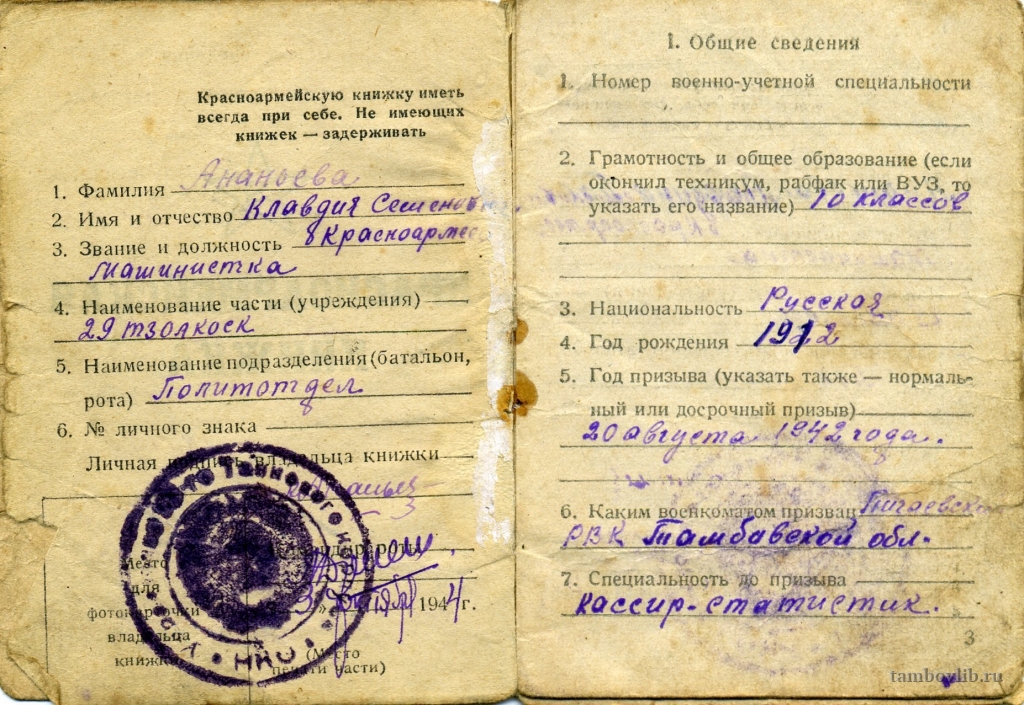 Красноармейскую книжку иметь
всегда при себе. Не имеющих
книжек — задерживать
1. Фамилия Ананьева
2. Имя и отчество Клавдия Семеновна
3. Звание и должность Красноармеец
машинистка
4. Наименование части (учреждения)
29 тзолкоск
5. Наименование подразделения (батальон,
рота) Политотдел
6. № личного знака
Личная подпись владельца книжки
Место
для
фотокарточки 1944 г.
владельца
книжки (Место
печати части)
I. Общие сведения
1. Номер военно-учетной специальности
2. Грамотность и общее образование (если
окончил техникум, рабфак или ВУЗ, то
указать его название) 10 классов
3. Национальность Русская
4. Год рождения 1922
5. Год призыва (указать также — нормаль-
ный или досрочный призыв)
20 августа 1942 года.
6. Каким военкоматом призван
РВК Тамбавской обл.
7. Специальность до призыва
кассир-статистик.
3
tambovlib.ru